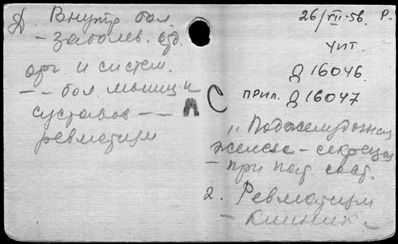 Д Внутр. бол.
- заболев. отд.
орг. и систем.
- - бол. мышц и
суставов - -
ревматизм
С
26/VII-56. Р.
Чит.
Д 16046.
прил. Д 16047
1. Поджелудочная
железа - секреция
- при пат. сост.
2. Ревматизм
- клиник.